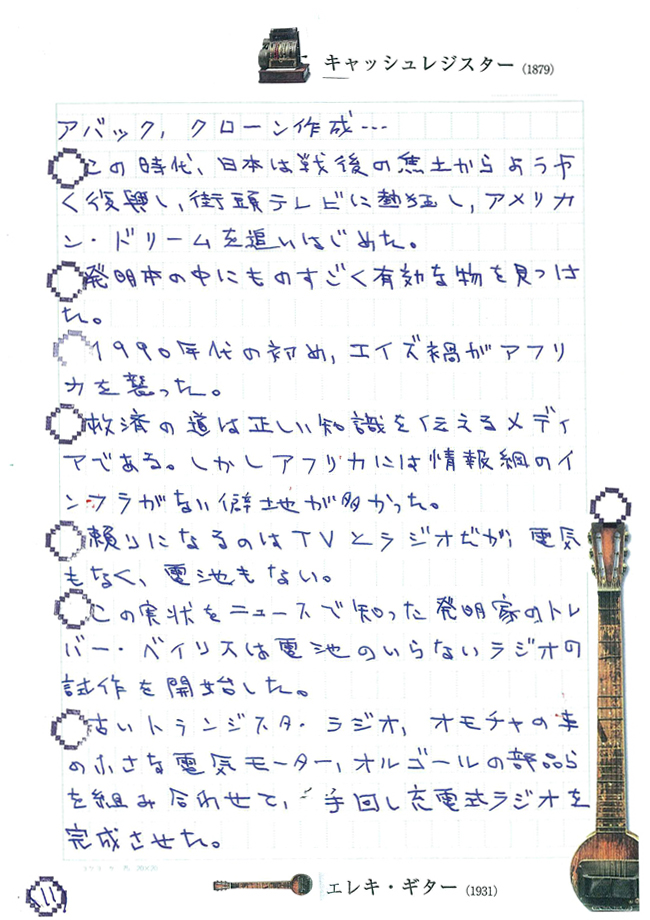 キャッシュレジスター (1879)
アバック, クローン作成…
この時代、日本は戦後の焦土からようや
く復興し、街頭テレビに熱狂し, アメリカ
ン・ドリームを追いはじめた。
発明本の中にものすごく有効な物を見つけ
た。
1990年代の初め, エイズ禍がアフリ
カを襲った。
救済の道は正しい知識を伝えるメディ
アである。しかしアフリカには情報網のイ
ンフラがない僻地が多かった。
頼りになるのはTVとラジオだが, 電気
もなく、電池もない。
この実状をニュースで知った発明家のトレ
バー・ベイリスは電池のいらないラジオの
試作を開始した。
古いトランジスタ・ラジオ, オモチャの車
の小さな電気モーター, オルゴールの部品ら
を組み合わせて, 手回し充電式ラジオを
完成させた。
11
エレキ・ギター (1931)